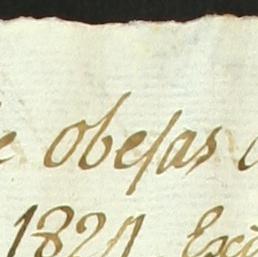 e obejas
1821. Exc